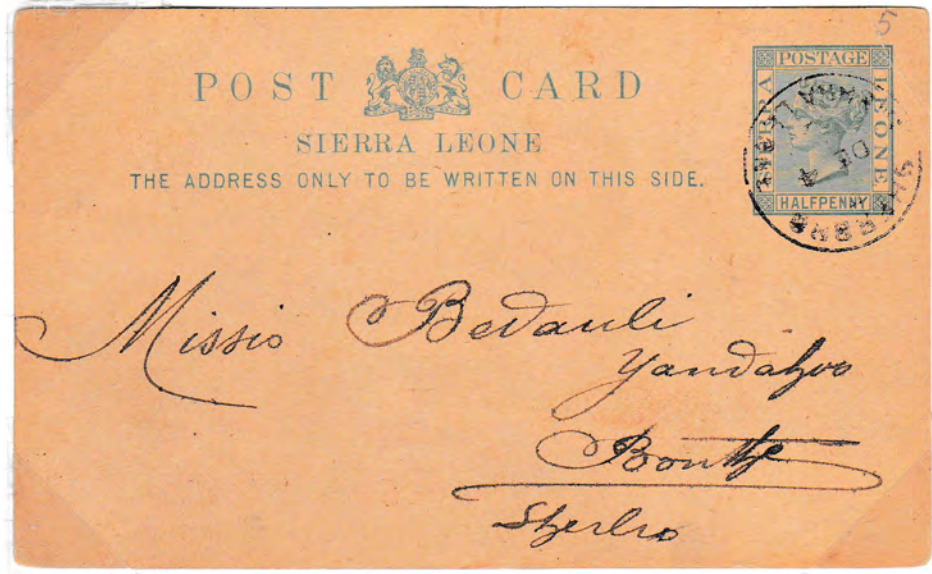 5
POST CARD
SIERRA LEONE
THE ADDRESS ONLY TO BE WRITTEN ON THIS SIDE.
POSTAGE
SIERRA
LEONE
HALFPENNY
DE
4
SHERBRO
Missio Bedauli
Yandahoo
Bonthe
Sherbro